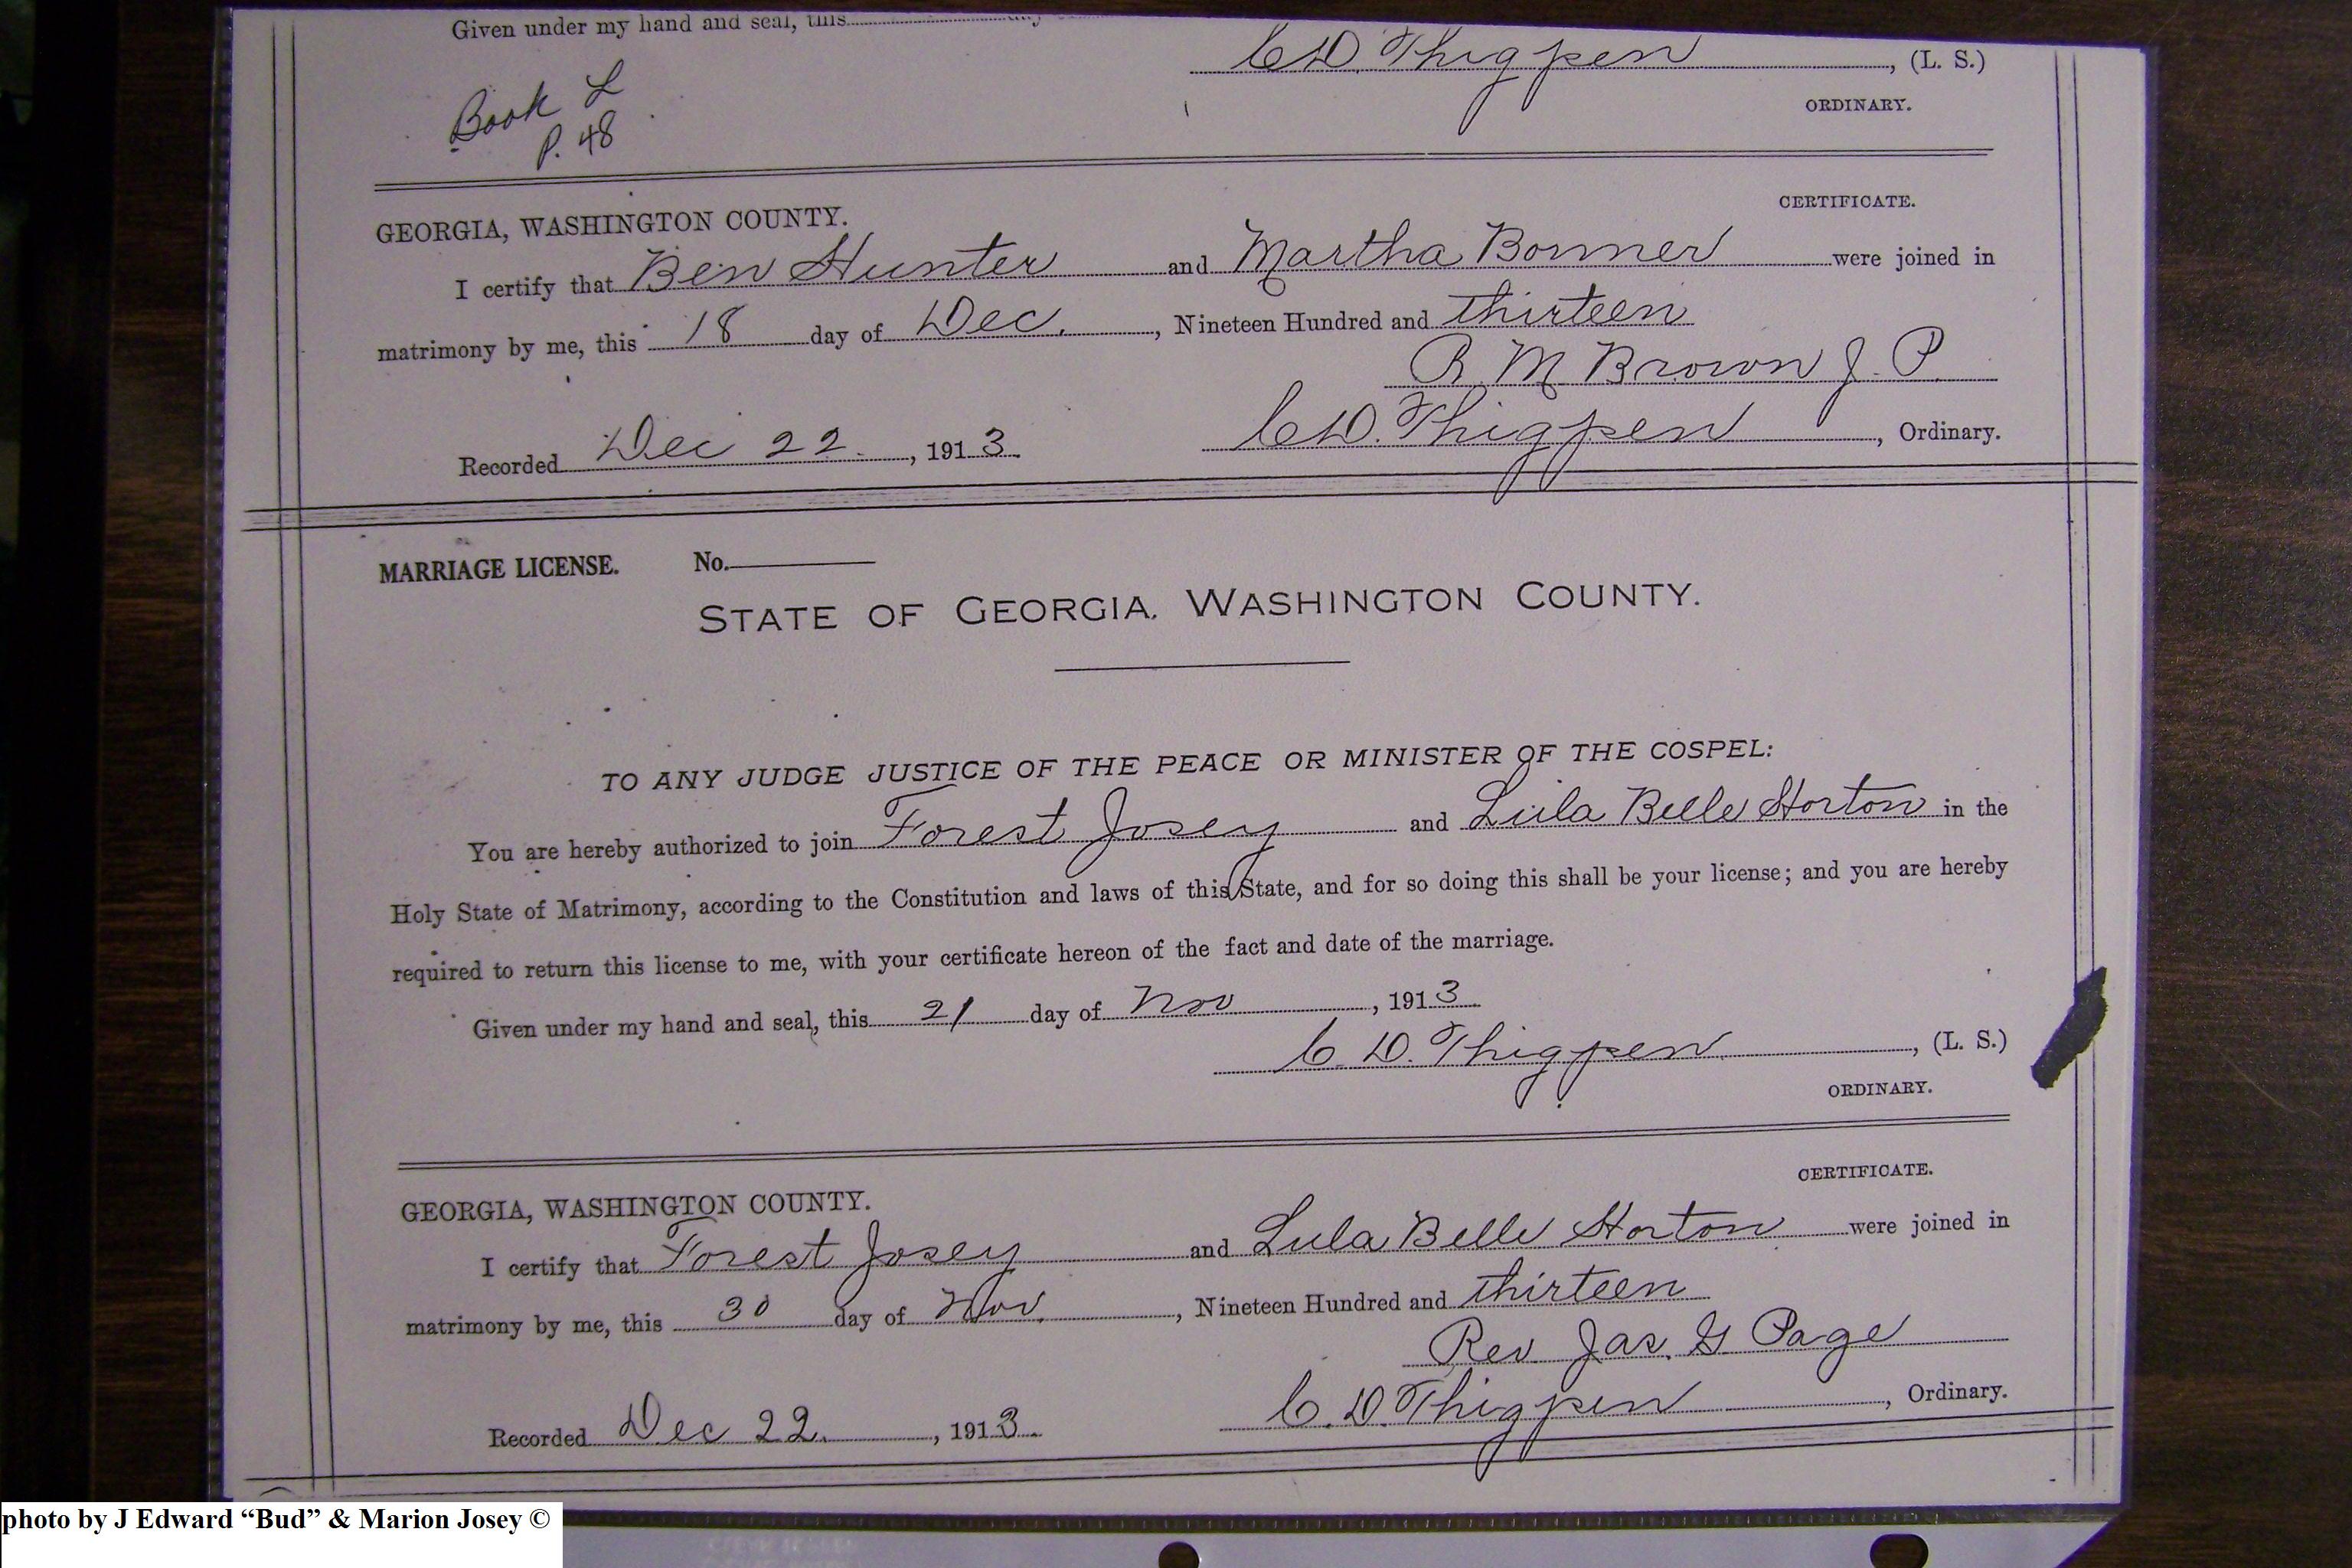 Given under my hand and seal, this
C.D. Thigpen, (L. S.)
ORDINARY.
Book L
P. 48
CERTIFICATE.
GEORGIA, WASHINGTON COUNTY.
I certify that Ben Hunter and Martha Bonner were joined in
matrimony by me, this 18 day of Dec., Nineteen Hundred and thirteen
R M Brown J. P.
C.D. Thigpen, Ordinary.
Recorded Dec 22., 1913.
MARRIAGE LICENSE. No.
STATE OF GEORGIA, WASHINGTON COUNTY.
TO ANY JUDGE JUSTICE OF THE PEACE OR MINISTER OF THE COSPEL:
You are hereby authorized to join Forest Josey and Lula Belle Horton in the
Holy State of Matrimony, according to the Constitution and laws of this State, and for so doing this shall be your license; and you are hereby
required to return this license to me, with your certificate hereon of the fact and date of the marriage.
Given under my hand and seal, this 21 day of Nov, 1913.
C. D. Thigpen, (L. S.)
ORDINARY.
CERTIFICATE.
GEORGIA, WASHINGTON COUNTY.
I certify that Forest Josey and Lula Belle Horton were joined in
matrimony by me, this 30 day of Nov., Nineteen Hundred and thirteen
Rev. Jas. G Page
C. D. Thigpen, Ordinary.
Recorded Dec 22., 1913.
photo by J Edward “Bud” & Marion Josey ©